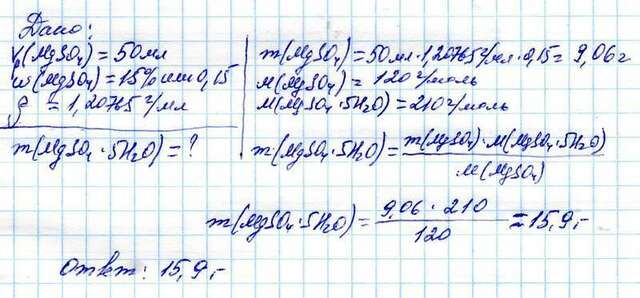 Дано:
V(MgSO₄) = 50мл
ω(MgSO₄) = 15% или 0,15
ρ = 1,20765 г/мл
m(MgSO₄ · 5H₂O) = ?
m(MgSO₄) = 50мл · 1,20765 г/мл · 0,15 = 9,06 г
M(MgSO₄) = 120 г/моль
M(MgSO₄ · 5H₂O) = 210 г/моль
m(MgSO₄ · 5H₂O) = m(MgSO₄) · M(MgSO₄ · 5H₂O)
M(MgSO₄)
m(MgSO₄ · 5H₂O) = 9,06 · 210 = 15,9,-
120
Ответ: 15,9,-